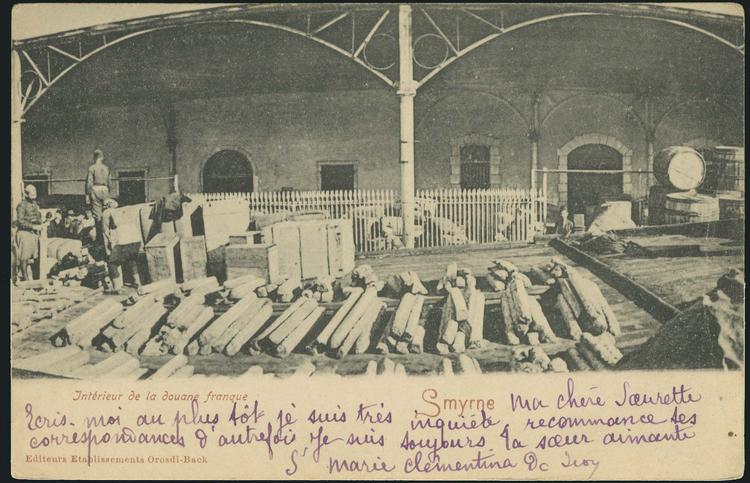 Intérieur de la douane franque
Smyrne
Ma chére Sœurette
Ecris-moi au plus tôt je suis très inquiéte, recommance tes
correspondances d'autrefois. Je suis toujours ta sœur aimante
Marie Clementina
Editeurs Etablissements Orosdi-Back